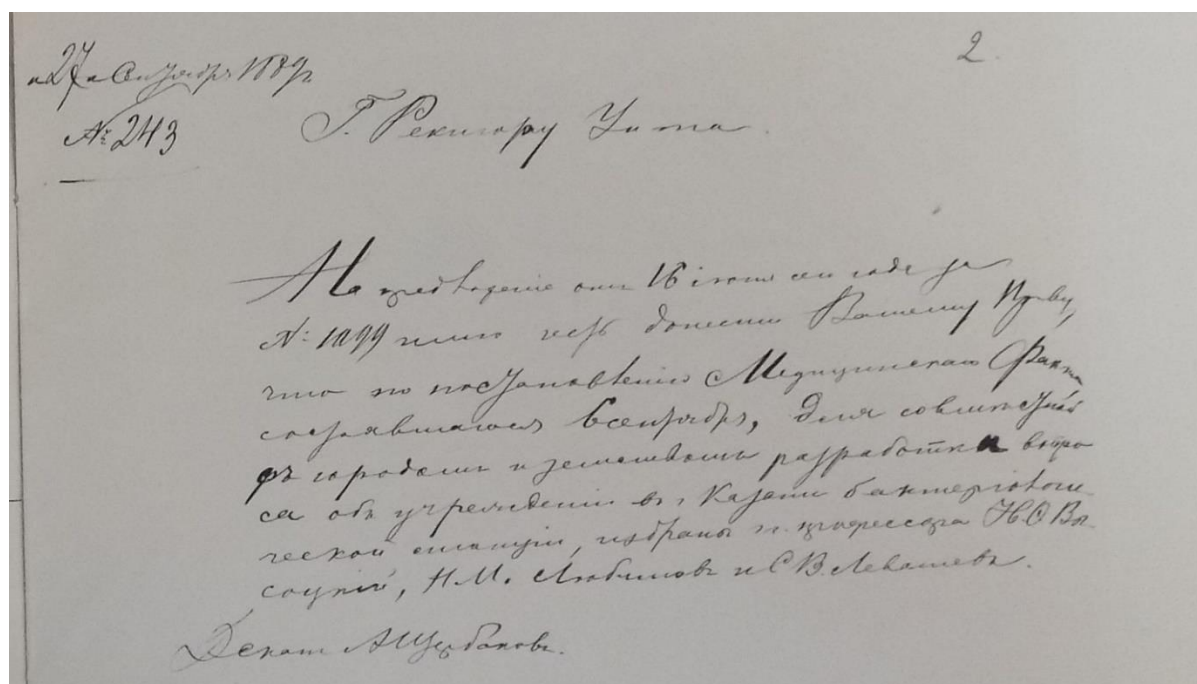 2.
"27" Сентября 1889 г.
№ 243
Г. Ректору Ун-та.
На предложение отъ 16 іюня сего года за
№ 1099 имѣю честь донести Вашему Прев.,
что по постановленію Медицинскаго Факта,
состоявшагося 6 сентября, для совмѣстной
съ городомъ и земствомъ разработки вопро
са объ учрежденіи въ г. Казани бактеріологи-
ческой станціи, избраны гг. профессора Н.Ѳ. Вы-
соцкій, Н.М. Любимовъ и С.В. Левашевъ.
Деканъ А Щербаковъ.